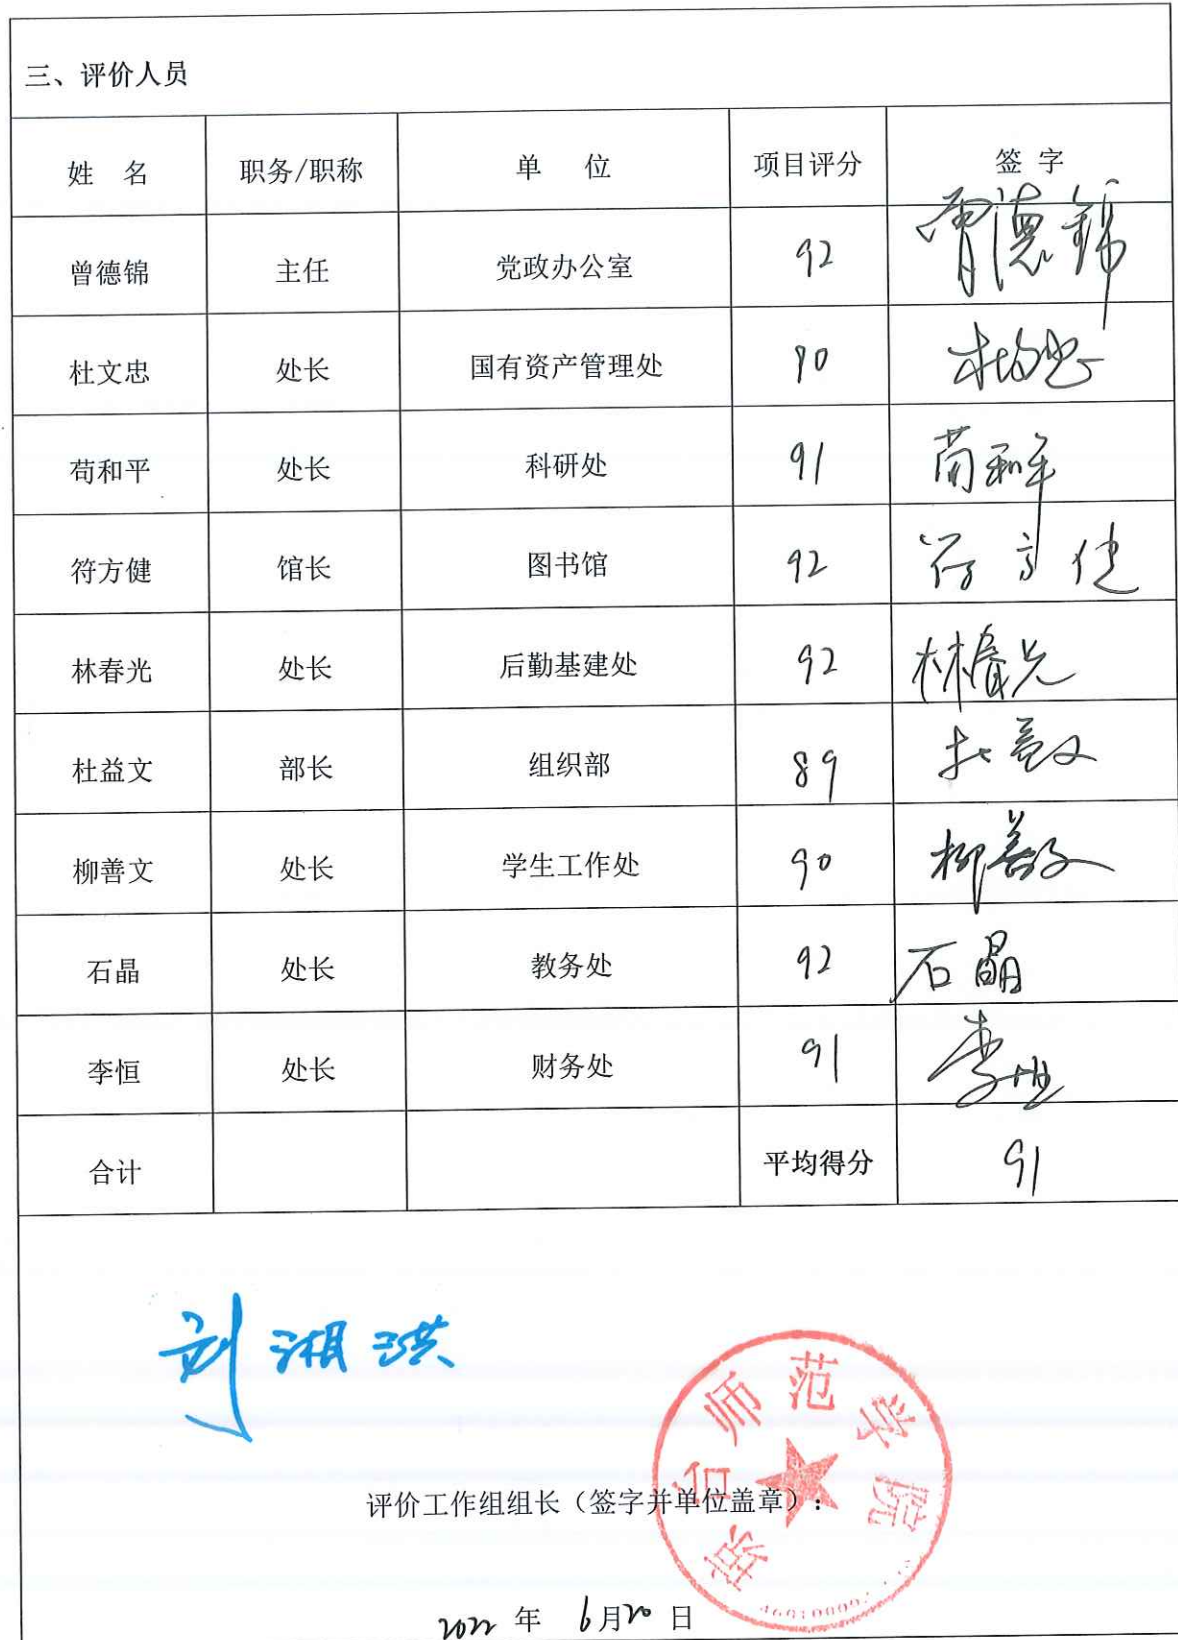 三、评价人员
姓 名 职务/职称 单 位 项目评分 签 字
曾德锦 主任 党政办公室 92 曾德锦
杜文忠 处长 国有资产管理处 90 杜文忠
荀和平 处长 科研处 91 荀和平
符方健 馆长 图书馆 92 符方健
林春光 处长 后勤基建处 92 林春光
杜益文 部长 组织部 89 杜益文
柳善文 处长 学生工作处 90 柳善文
石晶 处长 教务处 92 石晶
李恒 处长 财务处 91 李恒
合计 平均得分 91
刘湘洪
琼台师范学院
评价工作组组长（签字并单位盖章）：
2022 年 6月20 日